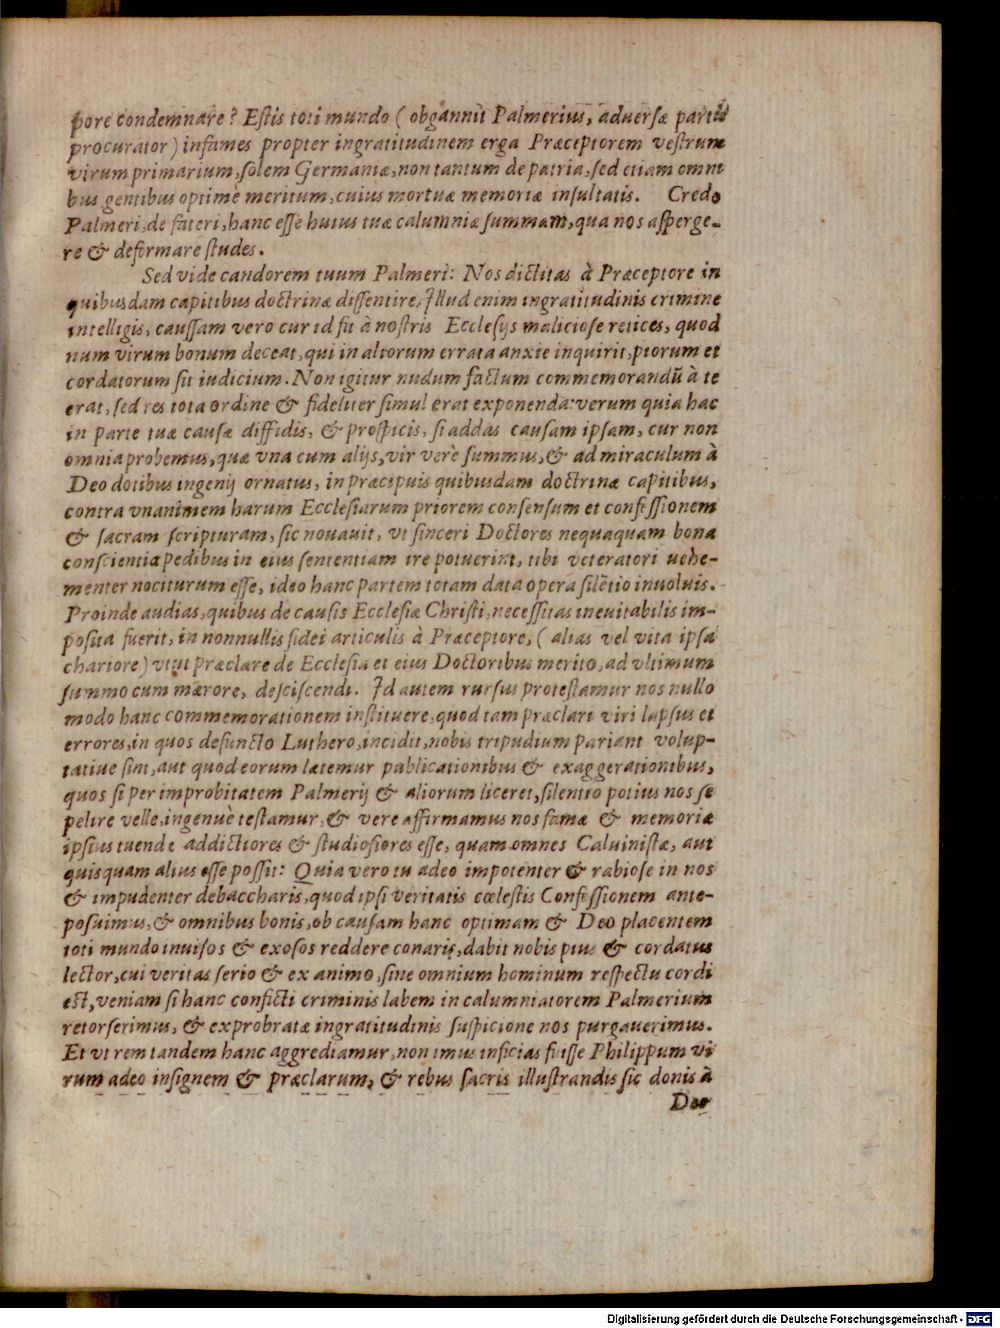 pore condemnare? Estis toti mundo (obgannit Palmerius, aduersæ partis
procurator) infames propter ingratitudinem erga Præceptorem vestrum
virum primarium, solem Germaniæ, non tantum de patria, sed etiam omni
bus gentibus optimè meritum, cuius mortuæ memoriæ insultatis. Credo
Palmeri, de fateri, hanc esse huius tuæ calumniæ summam, qua nos asperge-
re & deformare studes.
Sed vide candorem tuum Palmeri: Nos dictitas à Præceptore in
quibusdam capitibus doctrinæ dissentire, Illud enim ingratitudinis crimine
intelligis, caussam vero cur id fit à nostris Ecclesijs maliciose retices, quod
num virum bonum deceat, qui in aliorum errata anxie inquirit, piorum et
cordatorum sit iudicium. Non igitur nudum factum commemorandũ à te
erat, sed res tota ordine & fideliter simul erat exponenda: verum quia hac
in parte tuæ causæ diffidis, & prospicis, si addas causam ipsam, cur non
omnia probemus, quæ vna cum alijs, vir verè summus, & ad miraculum à
Deo dotibus ingenij ornatus, in præcipuis quibusdam doctrinæ capitibus,
contra vnanimem harum Ecclesiarum priorem consensum et confessionem
& sacram scripturam, sic nouauit, vt sinceri Doctores nequaquam bona
conscientia pedibus in eius sententiam ire potuerint, tibi veteratori uehe-
menter nociturum esse, ideo hanc partem totam data opera silẽtio inuoluis.
Proinde audias, quibus de causis Ecclesiæ Christi, necessitas ineuitabilis im-
posita fuerit, in nonnullis fidei articulis à Præceptore, (alias vel vita ipsa
chariore) vtut præclare de Ecclesia et eius Doctoribus merito, ad vltimum
summo cum mœrore, desciscendi. Id autem rursus protestamur nos nullo
modo hanc commemorationem instituere, quod tam præclari viri lapsus et
errores, in quos defuncto Luthero, incidit, nobis tripudium pariant volup-
tatiue sint, aut quod eorum lætemur publicationibus & exaggerationibus,
quos si per improbitatem Palmerij & aliorum liceret, silentio potius nos se
pelire velle, ingenuè testamur, & vere affirmamus nos famæ & memoriæ
ipsius tuendæ addictiores & studiosiores esse, quam omnes Caluinistæ, aut
quisquam alius esse possit: Quia vero tu adeo impotenter & rabiose in nos
& impudenter debaccharis, quod ipsi veritatis cœlestis Confessionem ante-
posuimus, & omnibus bonis, ob causam hanc optimam & Deo placentem
toti mundo inuisos & exosos reddere conaris, dabit nobis pius & cordatus
lector, cui veritas serio & ex animo, sine omnium hominum respectu cordi
est, veniam si hanc conficti criminis labem in calumniatorem Palmerium
retorserimus, & exprobratæ ingratitudinis suspicione nos purgauerimus.
Et vt rem tandem hanc aggrediamur, non imus inficias fuisse Philippum vi
rum adeo insignem & præclarum, & rebus sacris illustrandis sic donis à
Deo
Digitalisierung gefördert durch die Deutsche Forschungsgemeinschaft - DFG